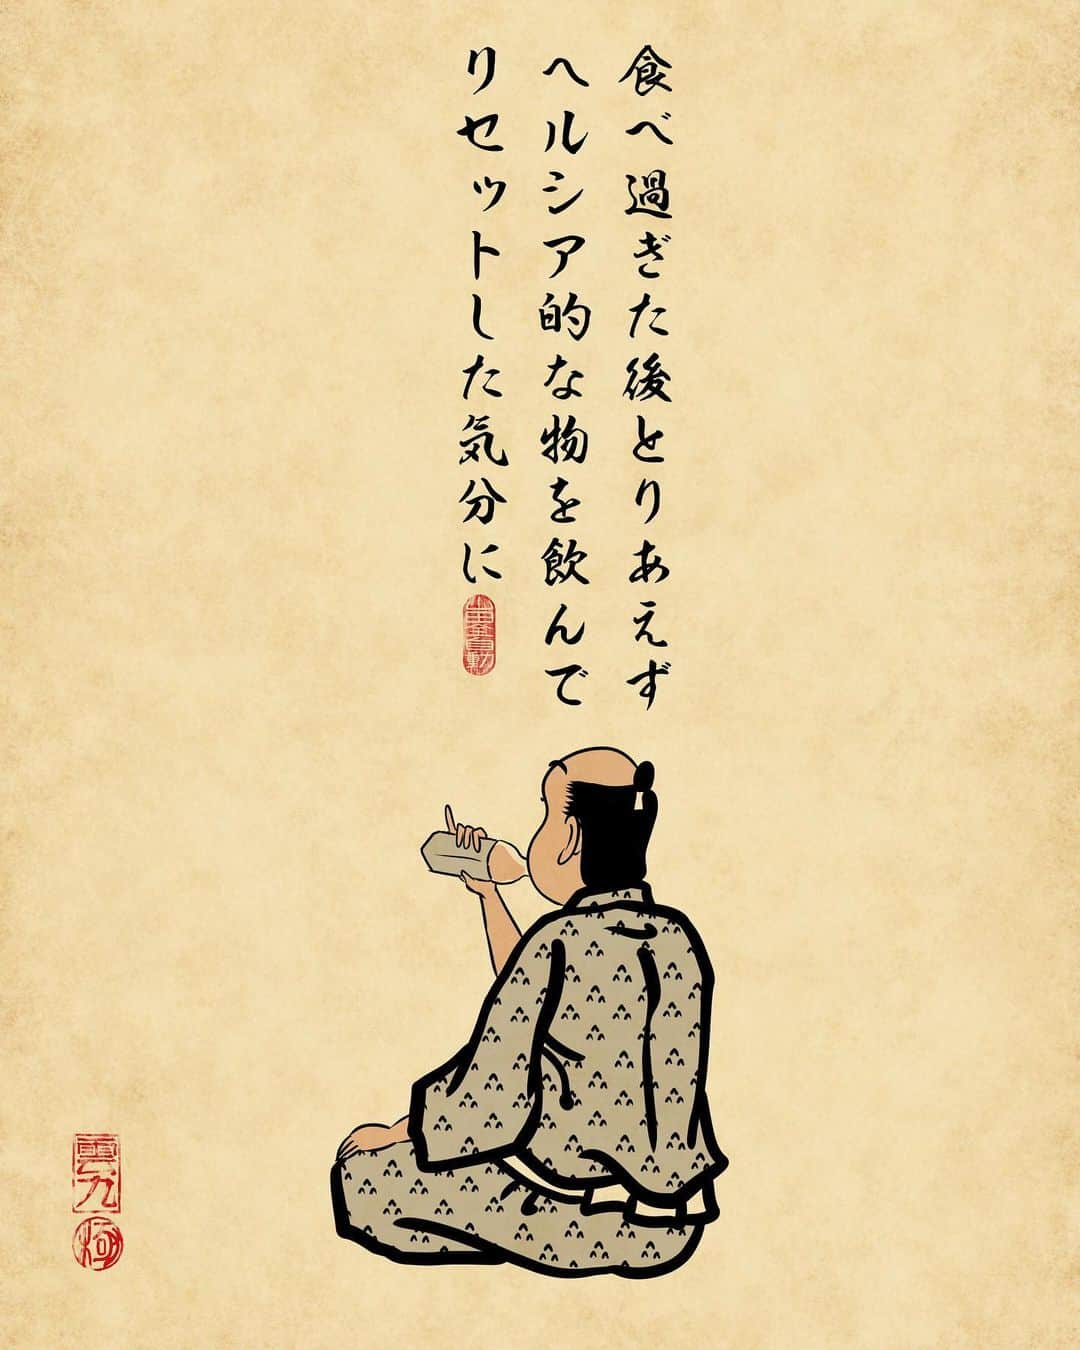 食べ過ぎた後とりあえず
ヘルシア的な物を飲んで
リセットした気分に